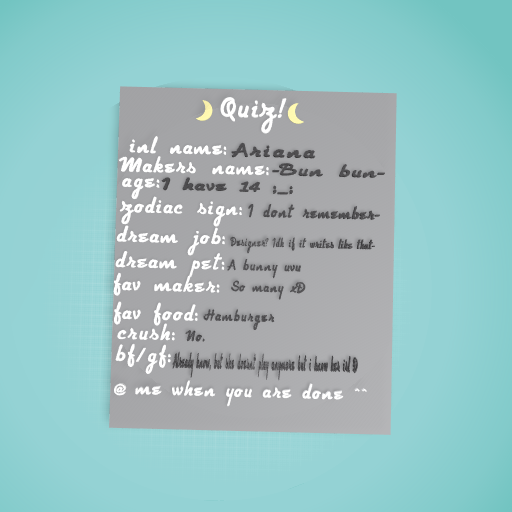 Quiz!
inl name: Ariana
Makers name: -Bun bun-
age: I have 14 ;_;
zodiac sign: I dont remember-
dream job: Designer? Idk if it writes like that-
dream pet: A bunny uvu
fav maker: So many xD
fav food: Hamburger
crush: No.
bf/gf: Already have, but she doesn't play anymore but i have her
@ me when you are done ^^